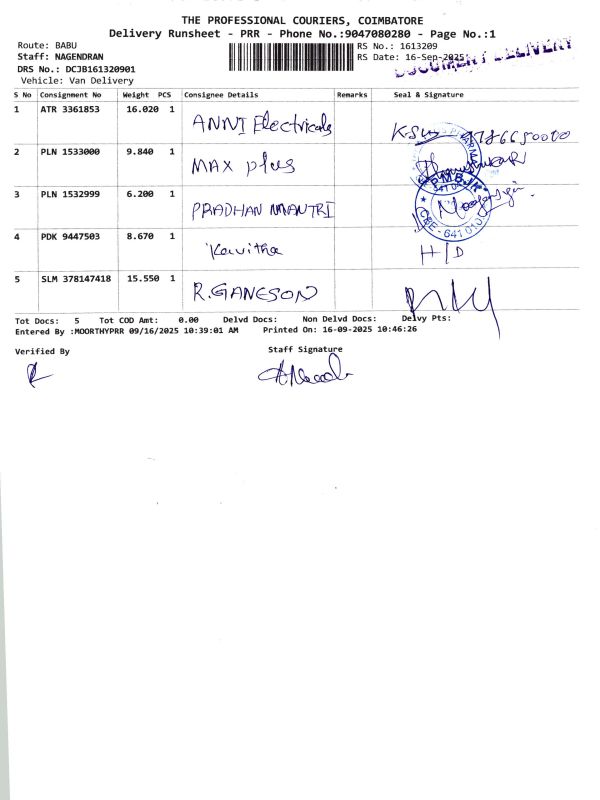 THE PROFESSIONAL COURIERS, COIMBATORE
Delivery Runsheet - PRR - Phone No.:9047080280 - Page No.:1
Route: BABU
Staff: NAGENDRAN
DRS No.: DCJB161320901
Vehicle: Van Delivery
RS No.: 1613209
RS Date: 16-Sep-2025
DOCUMENT DELIVERY
S No Consignment No Weight PCS Consignee Details Remarks Seal & Signature
1 ATR 3361853 16.020 1 ANNI Electricals
2 PLN 1533000 9.840 1 MAX plus
3 PLN 1532999 6.200 1 PRADHAN MANTRI
4 PDK 9447503 8.670 1 Kavitha H/D
5 SLM 378147418 15.550 1 R.GANESON
PMBJK
CBE - 641 010
Tot Docs: 5 Tot COD Amt: 0.00 Delvd Docs: Non Delvd Docs: Delvy Pts:
Entered By :MOORTHYPRR 09/16/2025 10:39:01 AM Printed On: 16-09-2025 10:46:26
Verified By
Staff Signature